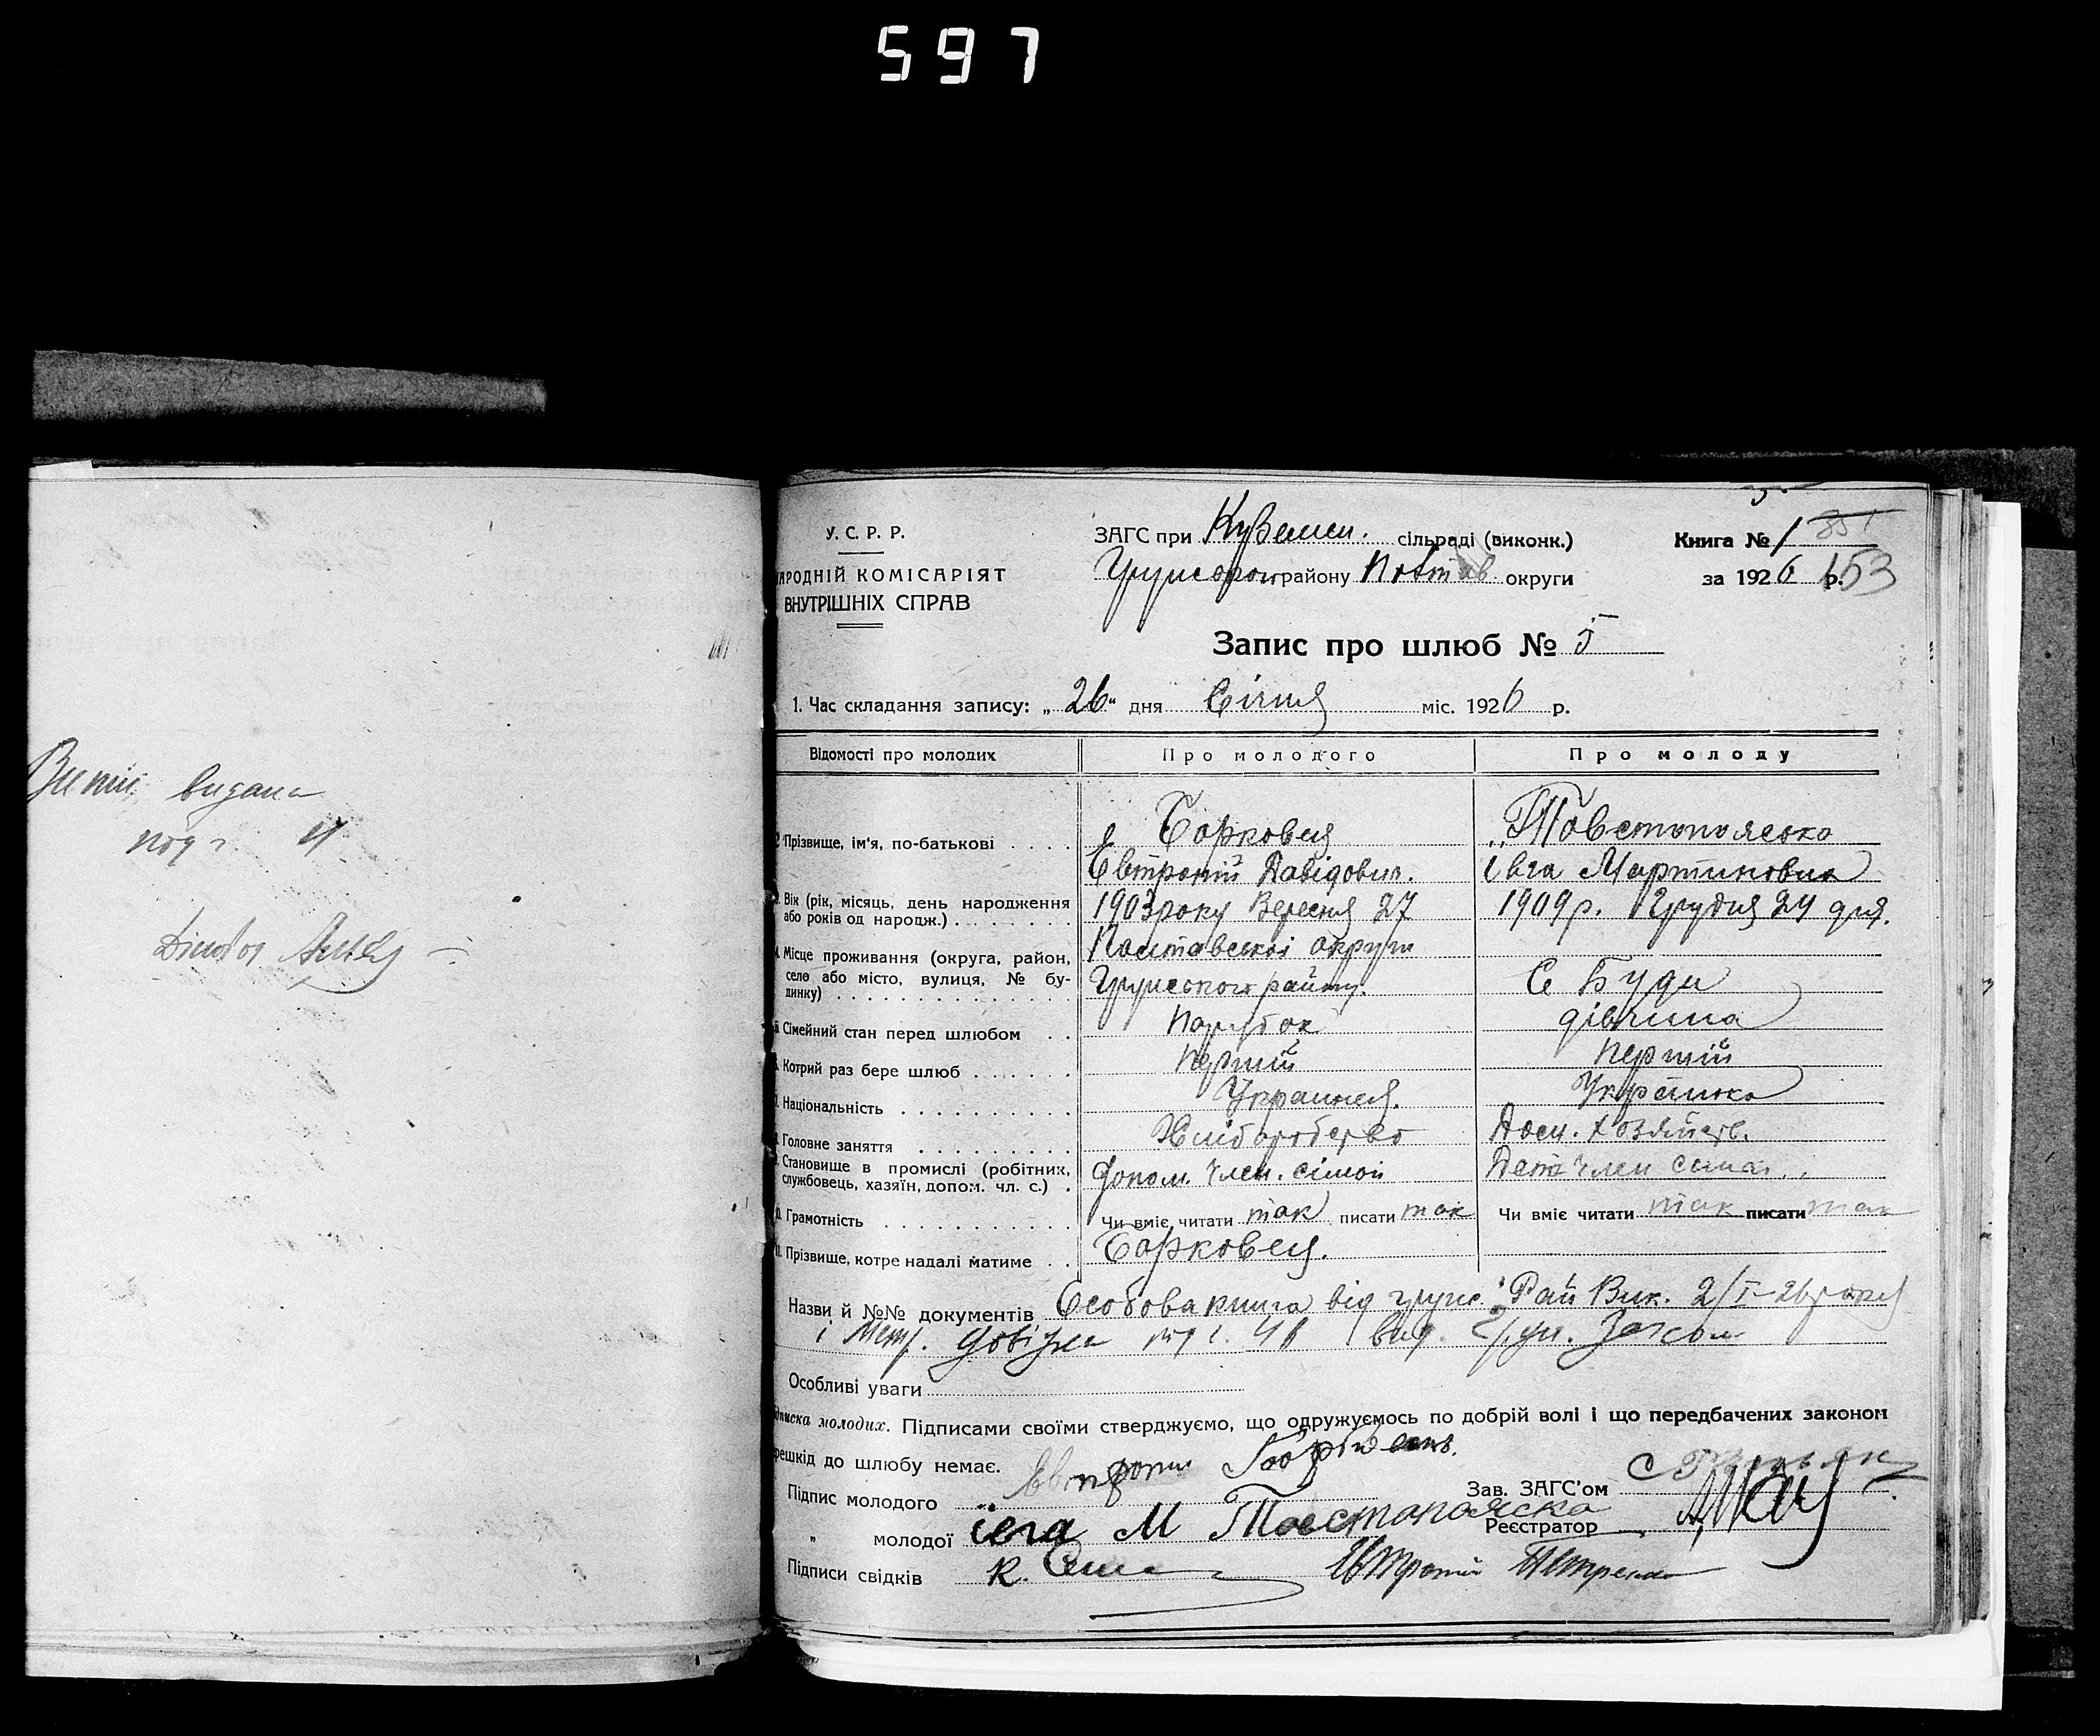 597
Витяг видана
У. С. Р. Р.
НАРОДНІЙ КОМІСАРІЯТ
ВНУТРІШНІХ СПРАВ
ЗАГС при Куземен. сільраді (виконк.)
району Полтав округи
Книга № 1
за 1926 р. 153
Запис про шлюб № 5
1. Час складання запису: „ 26 " дня Січня міс. 1926 р.
Відомості про молодих Про молодого Про молоду
2. Прізвище, ім'я, по-батькові . . . . Борковец Товстопояско
Євтропій Давідович. Івга Мартиновна
3. Вік (рік, місяць, день народження або років од народж.) . . . 1903 року Вересня 27 1909 р. Грудня 24 дня.
4. Місце проживання (округа, район, село або місто, вулиця, № будинку) . . . Полтавської округи
Грунського району. С Буди
5. Сімейний стан перед шлюбом . . Парубок дівчина
6. Котрий раз бере шлюб . . . Перший Перший
7. Національність . . . Украинец. Українка
8. Головне заняття . . . Хліборобство Дом. хозяйств.
9. Становище в промислі (робітник, службовець, хазяїн, допом. чл. с.) . допом. член. сімої член
10. Грамотність . . . Чи вміє читати так писати так Чи вміє читати так писати так
11. Прізвище, котре надалі матиме . . Борковец.
Назви й №№ документів Особова книга від грунс. Рай Вик. 2/I-26 року
і Метр. довідка вид. Грун. Загсом
Особливі уваги
Підписка молодих. Підписами своїми стверджуємо, що одружуємось по добрій волі і що передбачених законом
перешкід до шлюбу немає.
Підпис молодого Євтропий
Зав. ЗАГС'ом
„ молодої івга М Товстопояска
Реєстратор
Підписи свідків К. Євтропій Петренко